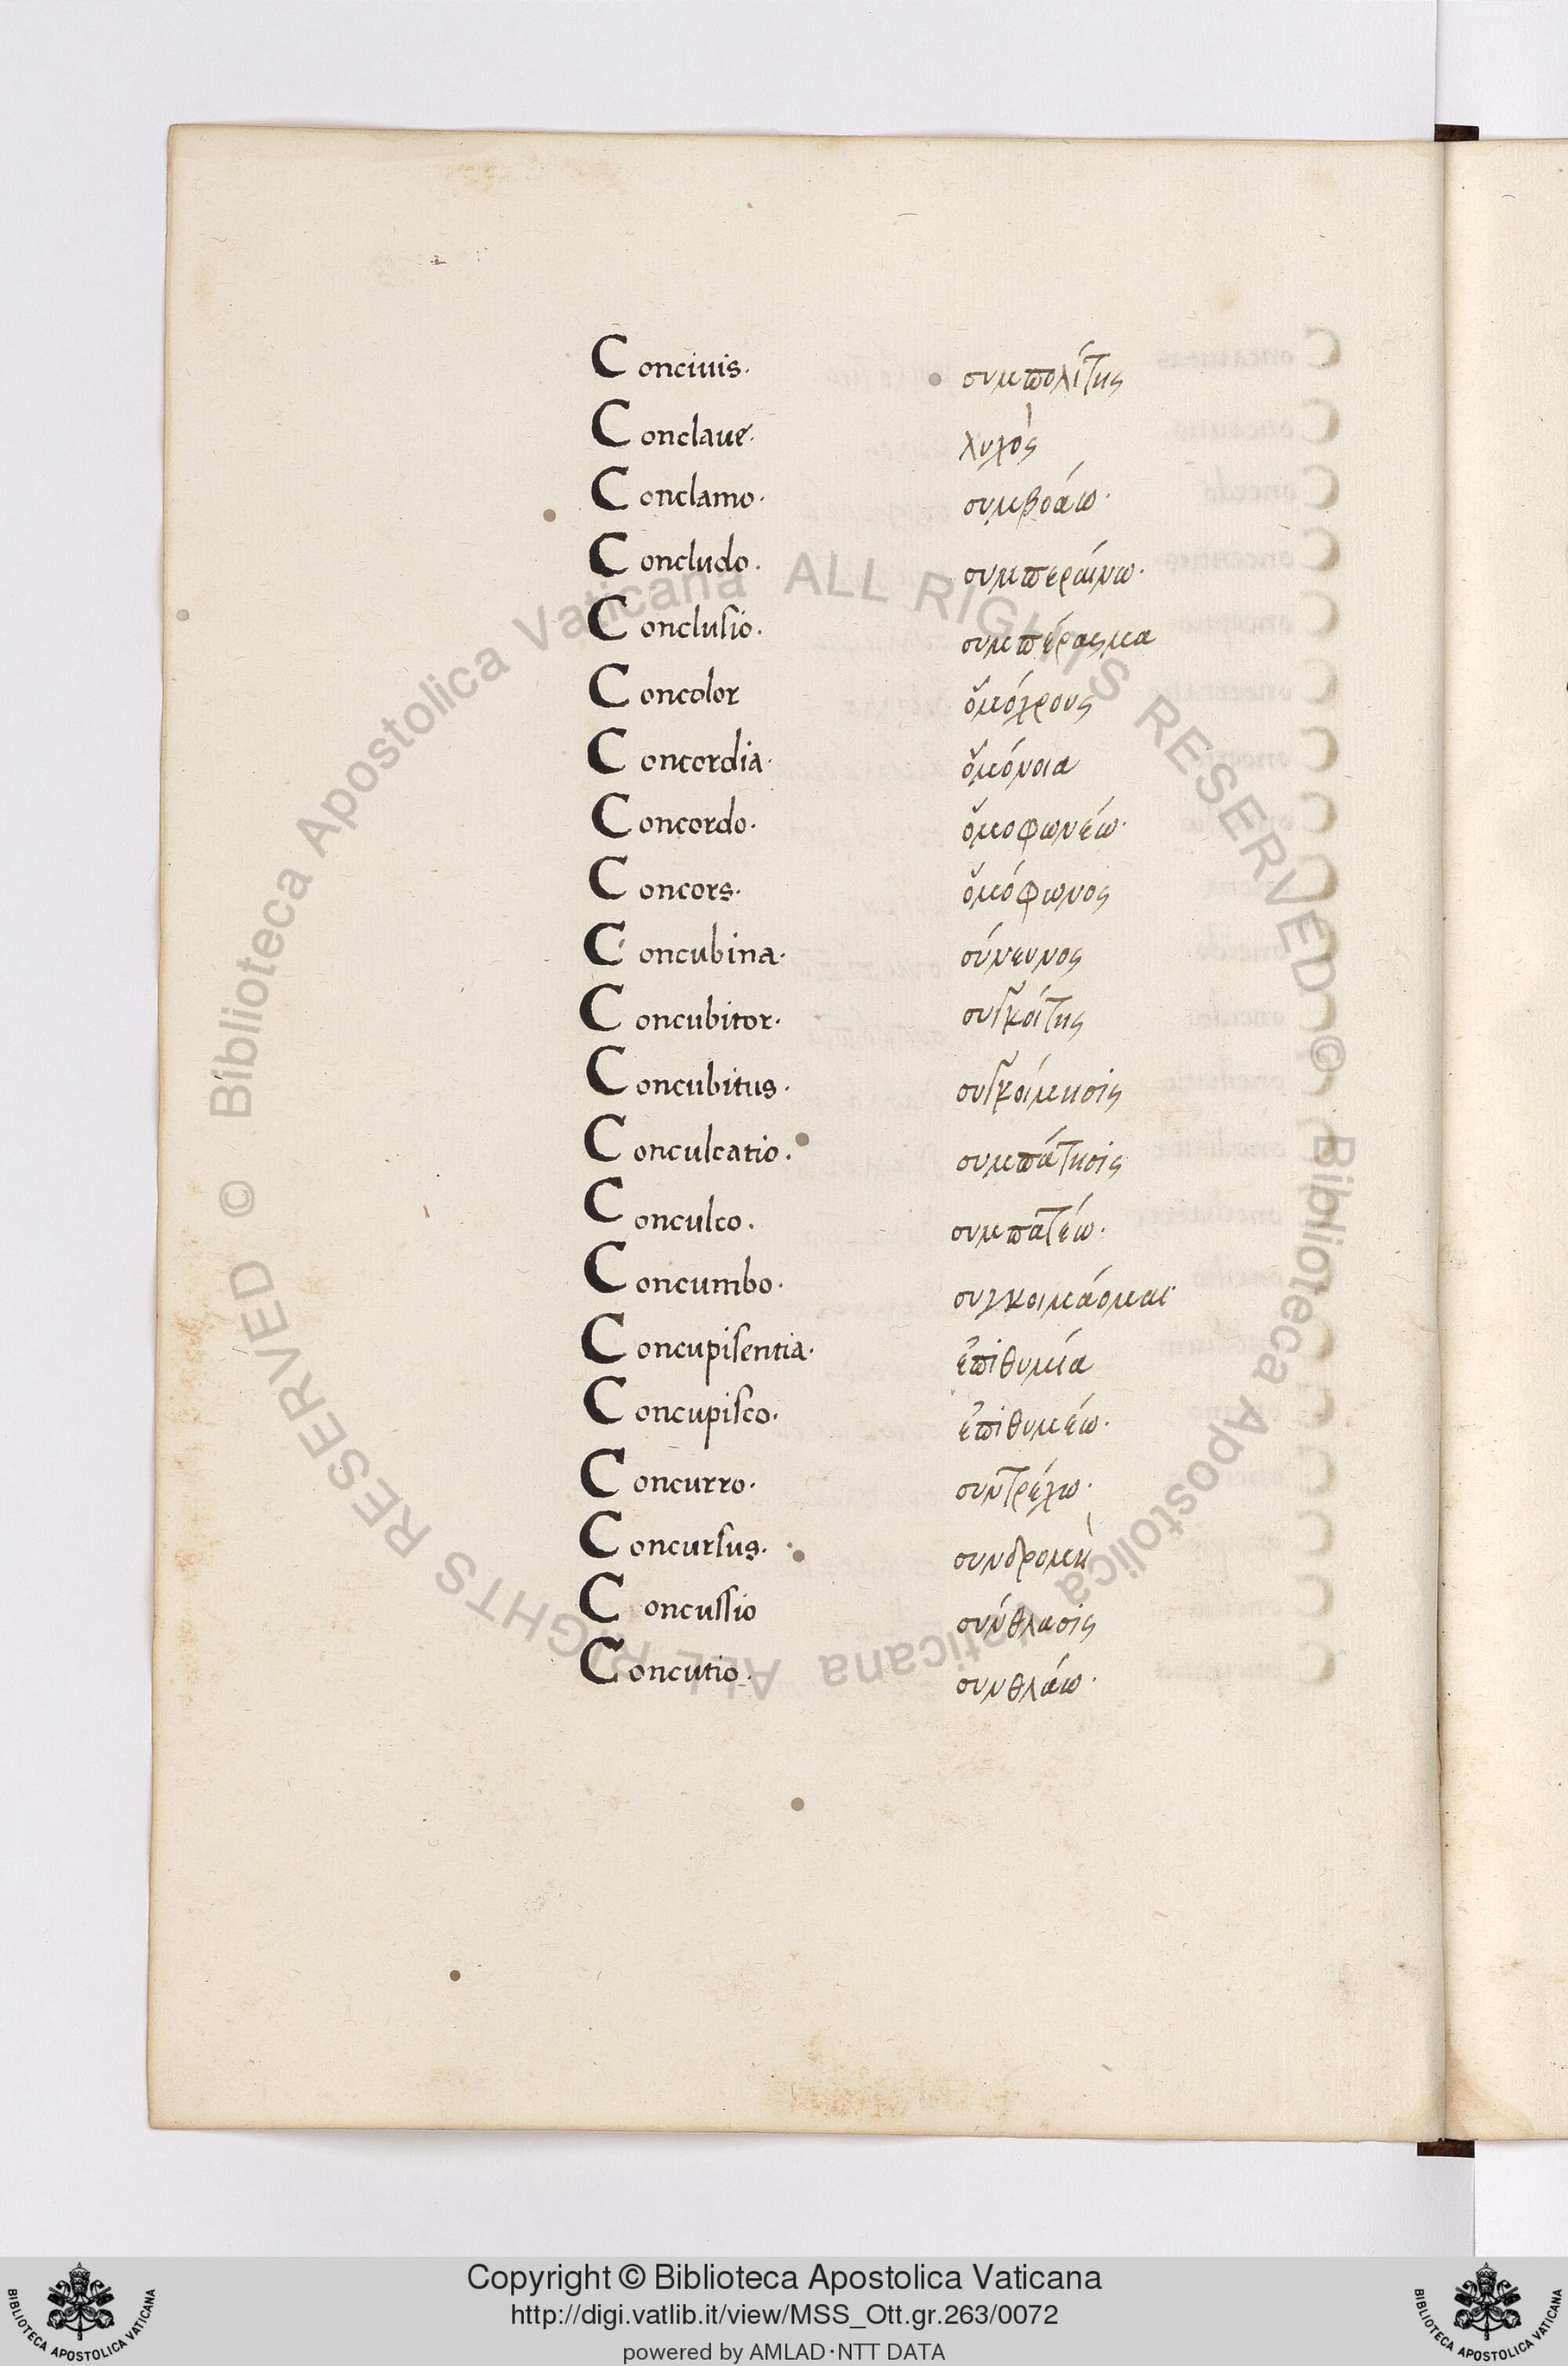 Conciuis· συμπολίτης
Conclaue· λυχός
Conclamo· συμβοάω·
Concludo· συμπεράινω·
Conclusio· συμπέρασμα
Concolor ὁμόχρους
Concordia· ὁμόνοια
Concordo· ὁμοφωνέω·
Concors· ὁμόφωνος
Concubina· σύνευνος
Concubitor· συγκοίτης
Concubitus· συγκοίμησις
Conculcatio· συμπάτησις
Conculco· συμπατέω·
Concumbo· συγκοιμάομαι
Concupisentia· ἐπιθυμία
Concupisco· ἐπιθυμέω·
Concurro· συντρέχω·
Concursus· συνδρομὴ
Concussio σύνθλασις
Concutio· συνθλάω·
© Biblioteca Apostolica Vaticana ALL RIGHTS RESERVED © Biblioteca Apostolica Vaticana ALL RIGHTS RESERVED
Copyright © Biblioteca Apostolica Vaticana
http://digi.vatlib.it/view/MSS_Ott.gr.263/0072
powered by AMLAD·NTT DATA
BIBLIOTECA APOSTOLICA VATICANA
BIBLIOTECA APOSTOLICA VATICANA